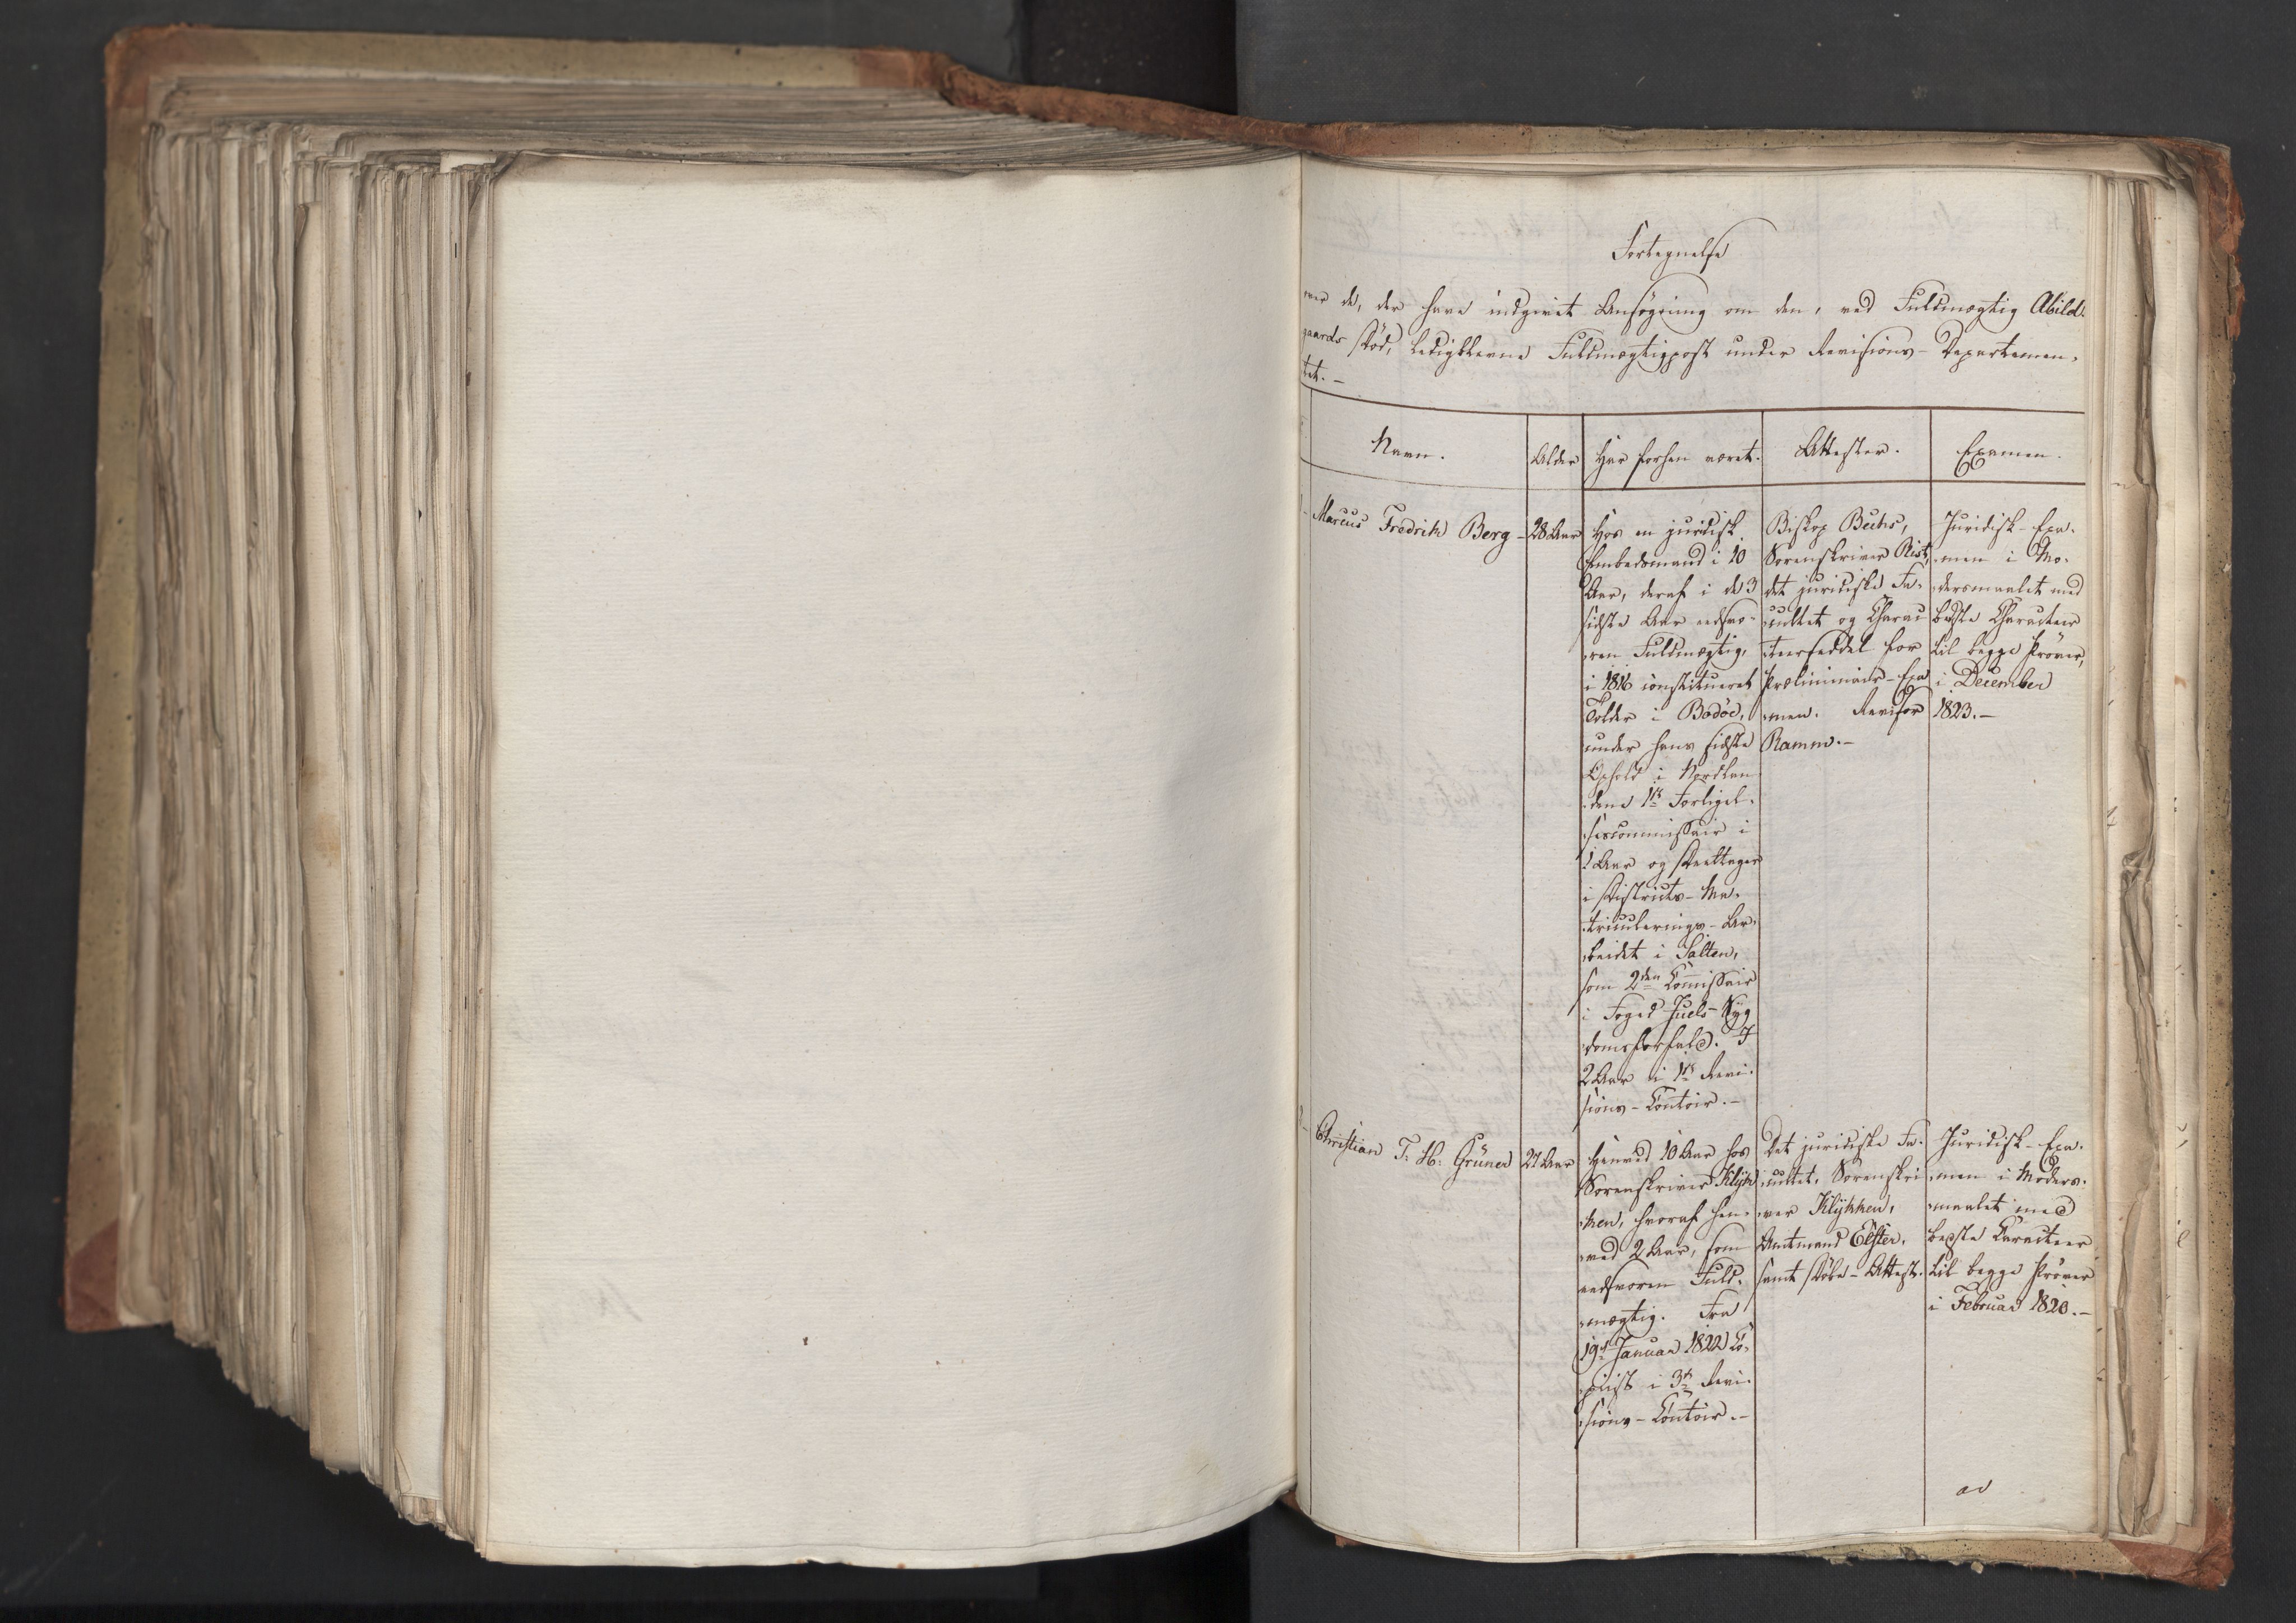 Fortegnelse
over de, der have indgivet Ansøgning om den, ved Fuldmægtig Abild-
gaards Død, ledigblevne Fuldmægtigpost under Revisions-Departemen-
tet. –
Navn.
Alder
Har forhen været.
Attester.
Examen.
Marcus Fredrik Berg –
28 Aar
Hos en juridisk
Embedsmand i 10
Aar, deraf i de 3
sidste Aar edsvo-
ren Fuldmægtig,
i 1816 constitueret
Tolder i Bodöe,
under hans sidste
Ophold i Nordlan-
dene 1ste Forligel-
sescommissair i
1 Aar og Deeltager
i Districts-Ma-
triculerings-Ar-
beidet i Salten,
som 2den Commissair
i Foged Juels Syg-
domsforfald. I
2 Aar i 1ste Revi-
sions-Contoir. –
Biskop Bechs,
Sorenskriver Rist,
det juridiske Fa-
cultet og Charac-
teerseddel for
Præliminair-Exa-
men. Revisor
Ramm. –
Juridisk-Exa-
men i Mo-
dersmaalet med
bedste Characteer
til begge Prøver,
i December
1823. –
Christian T. H. Grüner
27 Aar
Henved 10 Aar hos
Sorenskriver Klyk-
ken, hvoraf hen-
ved 2 Aar, som
edsvoren Fuld-
mægtig. Fra
19de Januar 1822 Co-
piist i 3die Revi-
sions-Contoir. –
Det juridiske Fa-
cultet, Sorenskri-
ver Klykken,
Amtmand Elster,
samt Döbe-Attest.
Juridisk-Exa-
men i Moders-
maalet med
bedste Caracteer
til begge Prøver
i Februar 1820. –